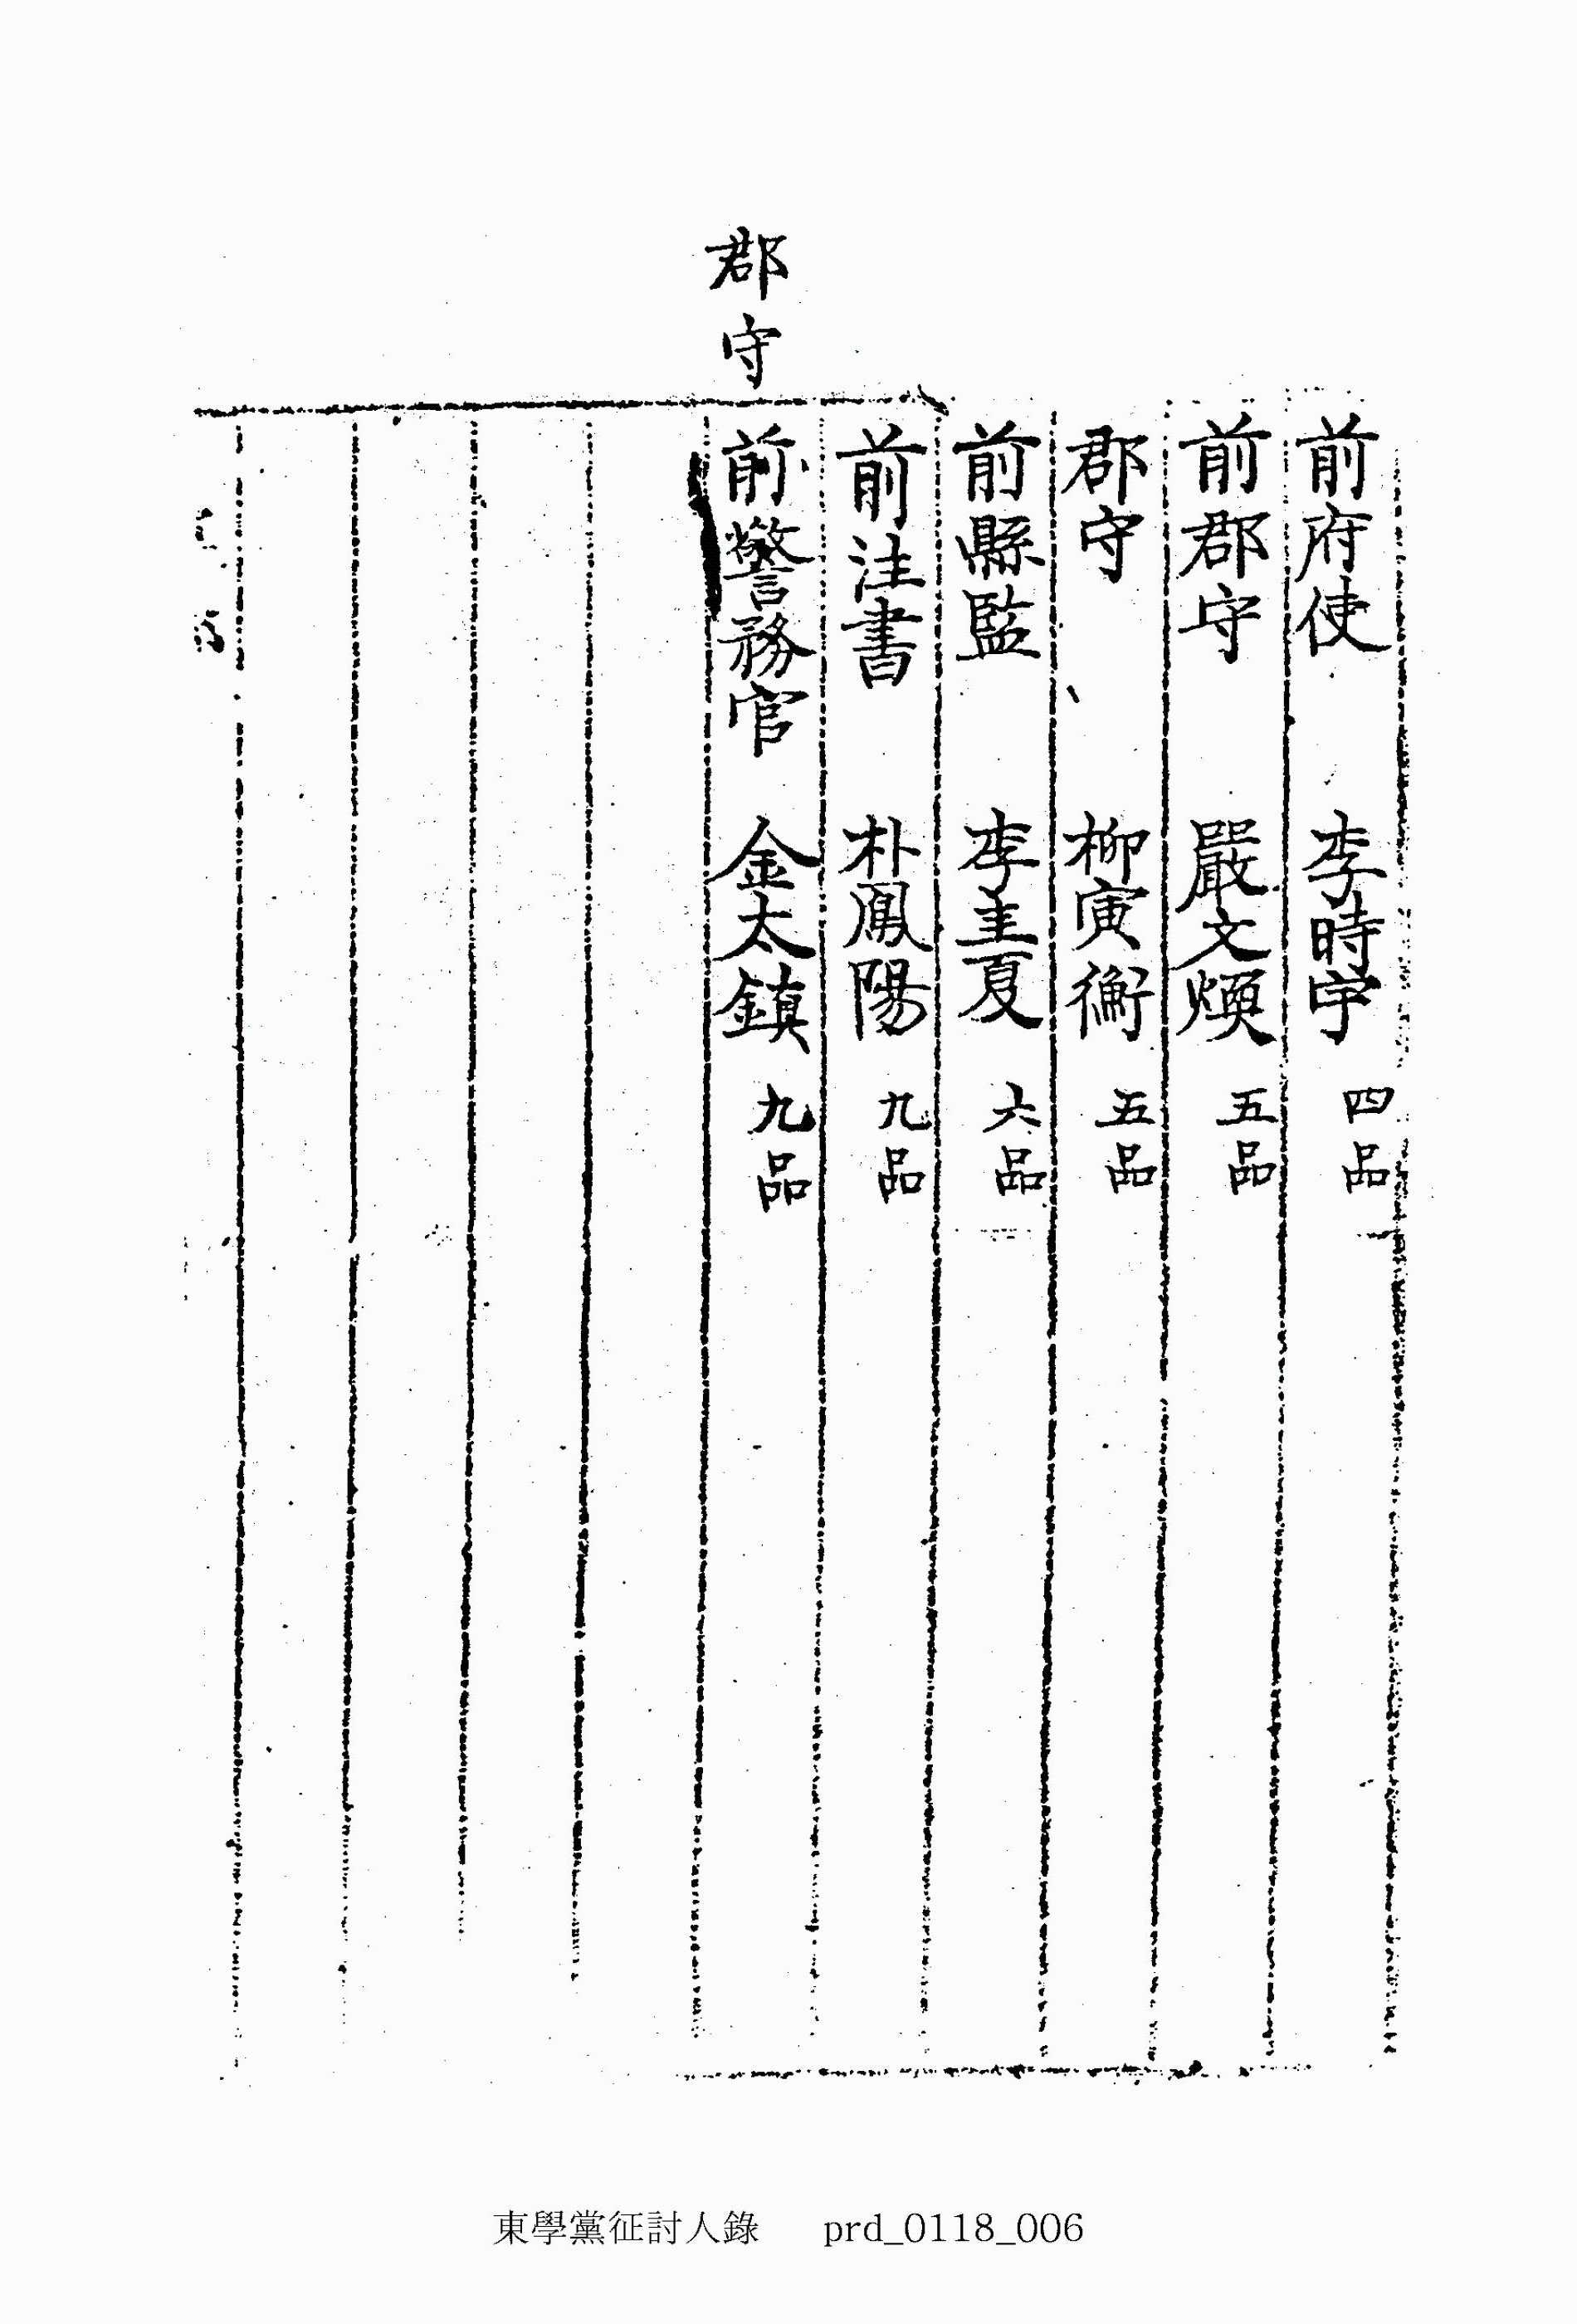 前府使 李時宇 四品
前郡守 嚴文煥 五品
郡守 柳寅衡 五品
前縣監 李圭夏 六品
前注書 朴鳳陽 九品
郡守
前警務官 金太鎮 九品
東學黨征討人錄 prd_0118_006